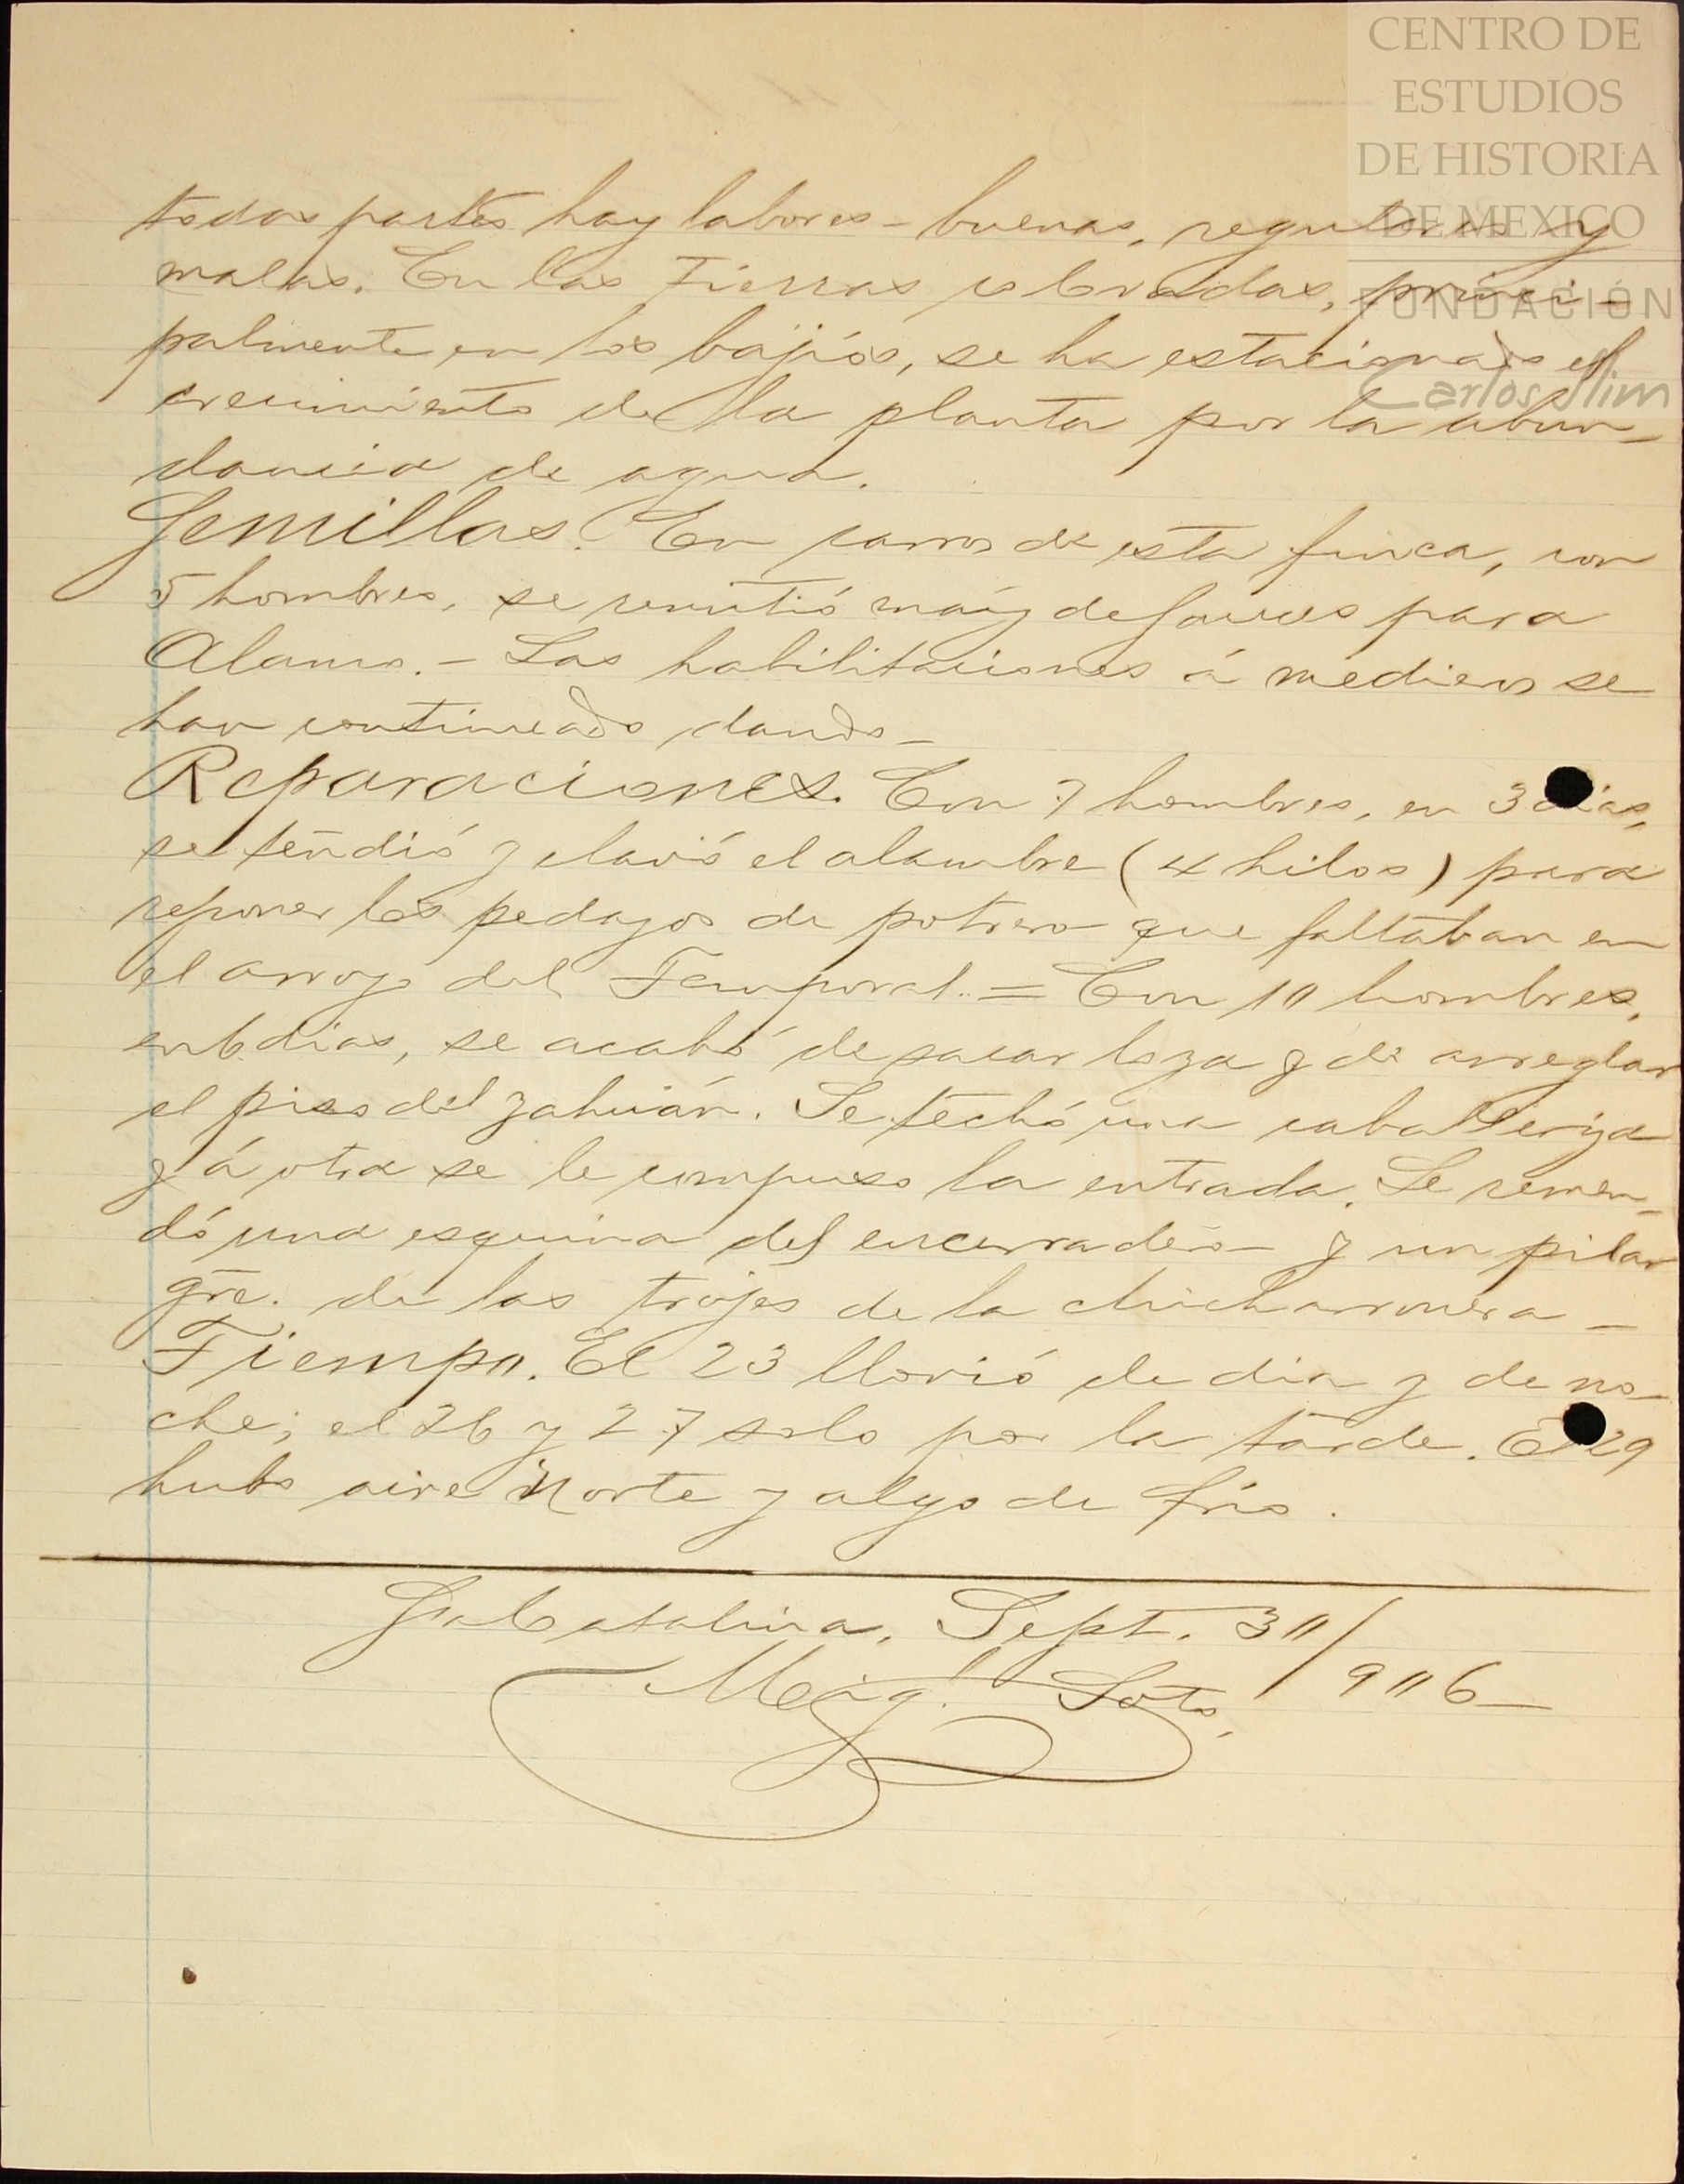 CENTRO DE
ESTUDIOS
DE HISTORIA
DE MEXICO
FUNDACIÓN
Carlos Slim
todas partes hay labores - buenas, regulares y
malas. En las tierras coloradas, princi-
palmente en los bajíos, se ha estacionado el
crecimiento de la planta por la abun-
dancia de agua.
Semillas. En carros de esta finca, con
5 hombres, se remitió maíz de para
Alamo. - Las habilitaciones á medieros se
han continuado dando -
Reparaciones. Con 7 hombres, en 3 días,
se tendió y clavó el alambre (4 hilos) para
reponer los pedazos de potrero que faltaban en
el arroyo del Temporal. = Con 10 hombres,
en 6 días, se acabó de sacar loza y de arreglar
el piso del zahuán. Se techó una caballeriza
y á otra se le compuso la entrada. Se remen-
dó una esquina del encerradero y un pilar
gre. de las trojes de la chicharronera -
Tiempo. El 23 llovió de dia y de no-
che; el 26 y 27 solo por la tarde. El 29
hubo aire Norte y algo de frío.
Sta Catalina, Sept. 30/
906 -
Marg. Soto.